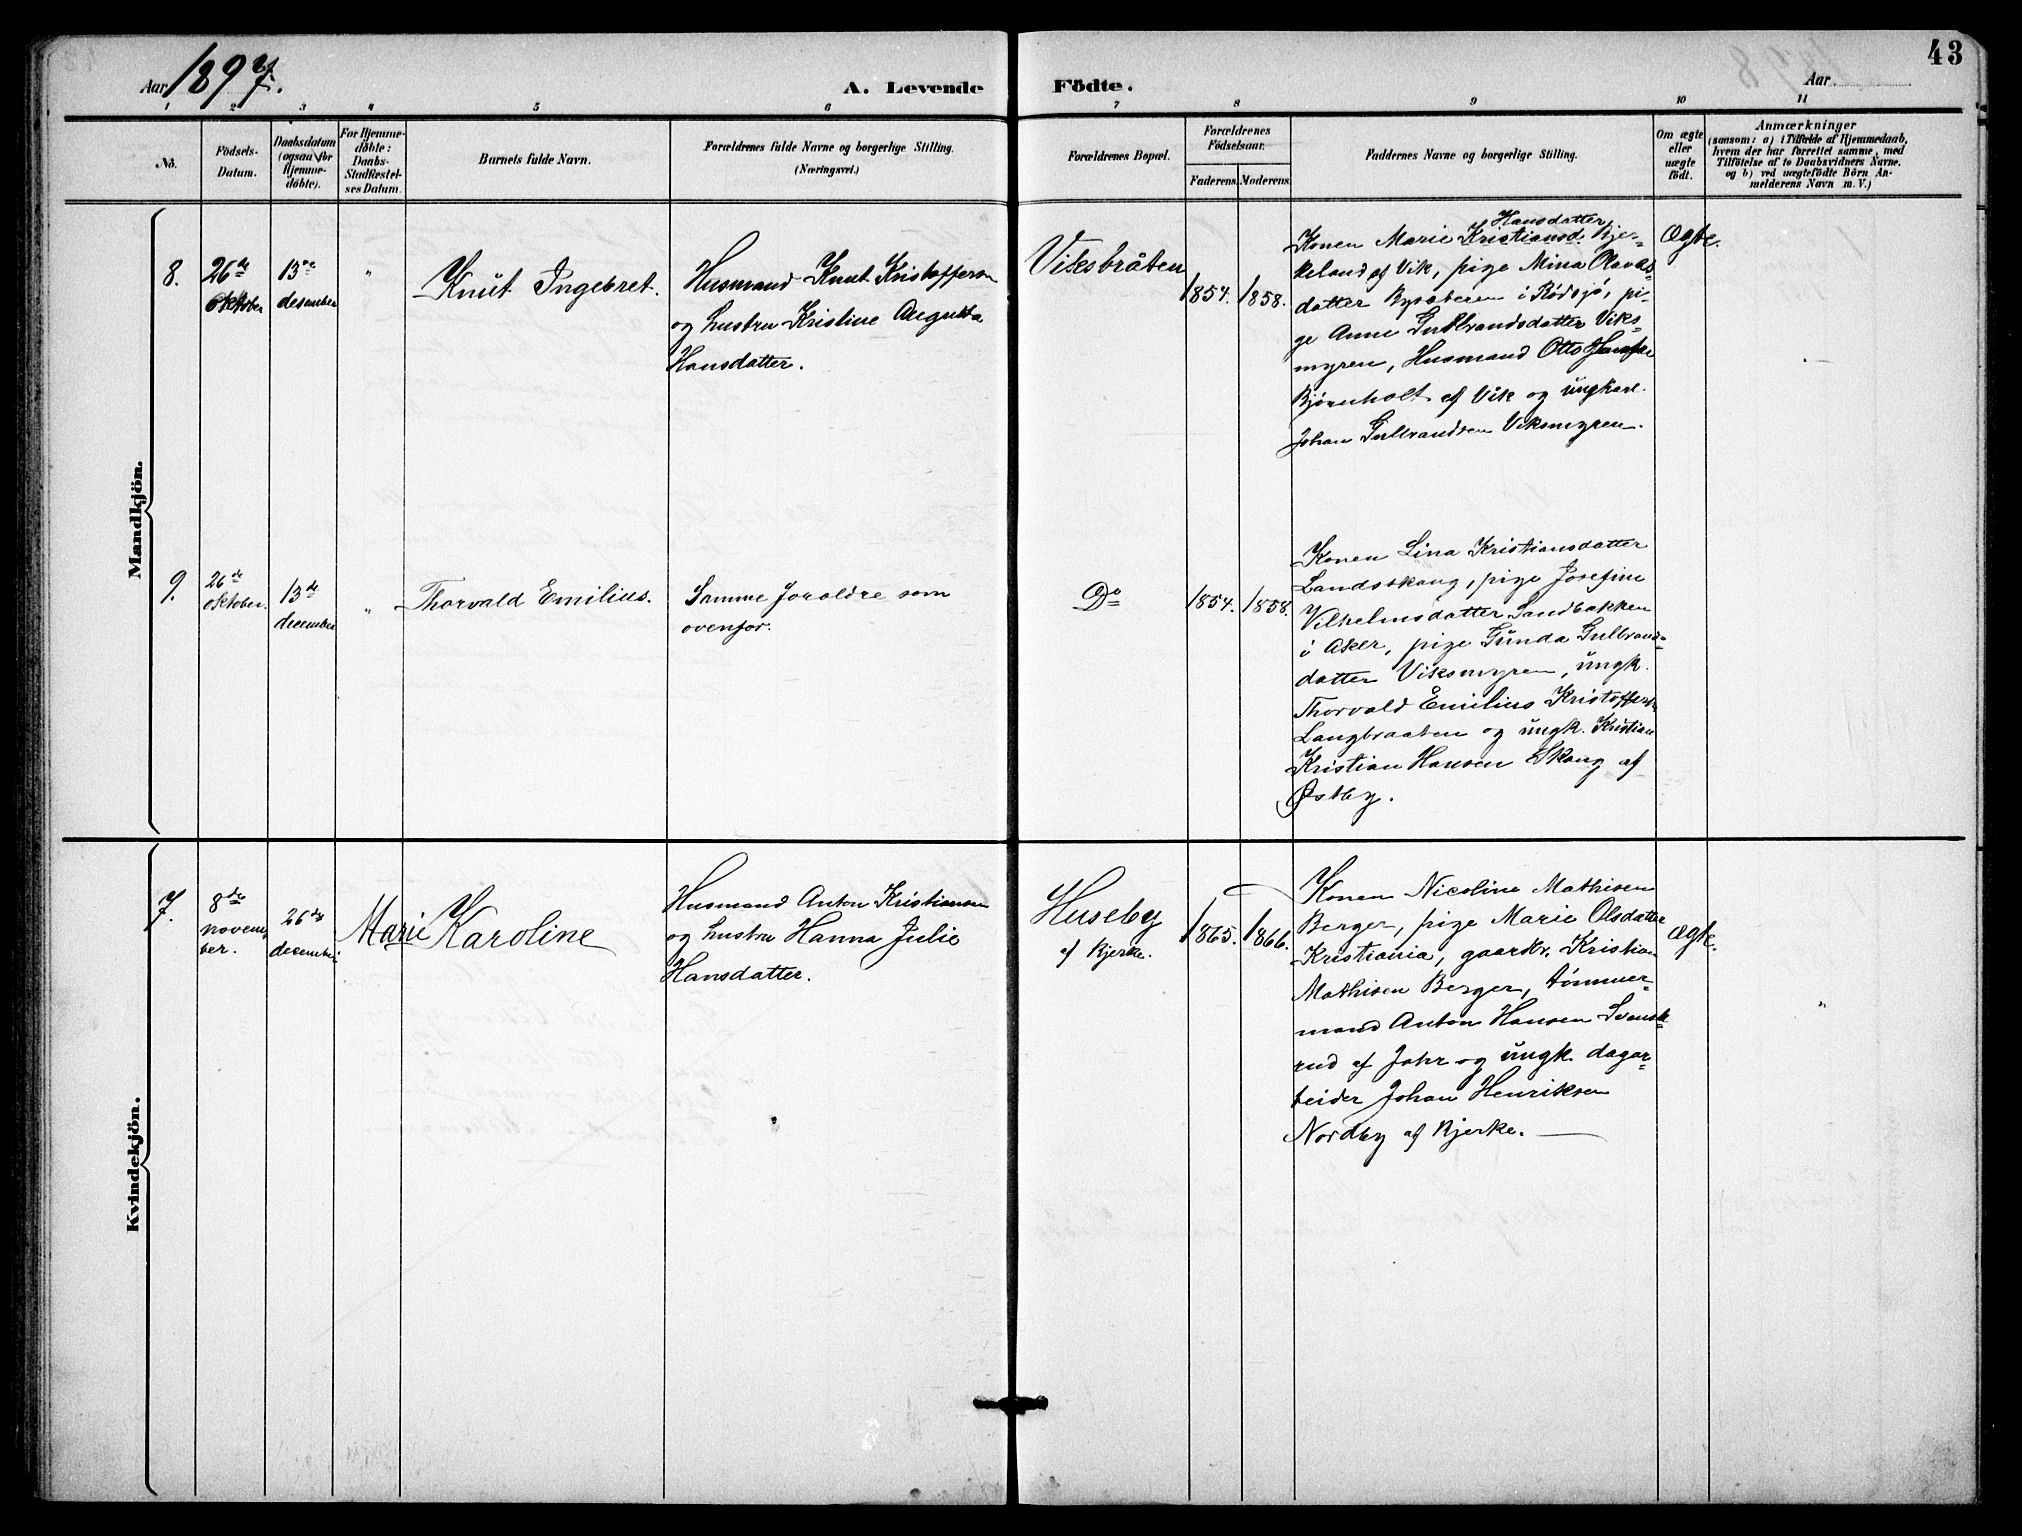 43
Aar 1897.
A. Levende Födte.
Aar
1 2 3 4 5 6 7 8 9 10 11
No.
Födsels-
Datum.
Daabsdatum
(ogsaa for
Hjemme-
döbte).
For Hjemme-
döbte:
Daabs-
Stadfæstel-
ses Datum.
Barnets fulde Navn.
Forældrenes fulde Navne og borgerlige Stilling.
(Næringsvei.)
Forældrenes Bopæl.
Forældrenes
Födselsaar.
Faderens. Moderens.
Faddernes Navne og borgerlige Stilling.
Om ægte
eller
uægte
födt.
Anmærkninger
(saasom: a) i Tilfælde af Hjemmedaab,
hvem der har forrettet samme, med
Tilföielse af to Daabsvidners Navne.
og b) ved uægtefödte Börn An-
melderens Navn m. V.)
Mandkjön.
8.
26de
oktober
13de
desember
"
Knut Ingebret.
Husmand Knut Kristofferson
og hustru Kristine Augusta
Hansdatter.
Viksbråten
1854. 1858.
Hansdatter
Konen Marie Kristiansd. Bjer-
keland af Vik, pige Mina Olavas-
datter i Rødsjø, pi-
ge Anne Gulbrandsdatter Viks-
myren, Husmand Otto
Bjørnholt af Vik og ungkarl
Johan Gulbrandsen Viksmyren.
Ægte.
9.
26de
oktober.
13de
december
"
Thorvald Emilius.
Samme foraldre som
ovenfor.
Do
1854. 1858.
Konen Lina Kristiansdatter
Landsskaug, pige Josefine
Vilhelmsdatter Sandbakken
i Aker, pige Gunda Gulbrands-
datter Viksmyren, ungk.
Thorvald Emilius Kristoffersen
Langbraaten og ungk. Kristian
Kristian Hansen Skaug af
Østby.
Kvindekjön.
7.
8de
novem-
ber.
26de
december
Marie Karoline
Husmand Anton Kristiansen
og hustru Hanna Julie
Hansdatter.
Huseby
af Bjerke.
1865. 1866.
Konen Nicoline Mathisen
Berger, pige Marie Olsdatter
Kristiania, gaardbr. Kristian
Mathisen Berger, tømmer-
mand Anton Hansen Svensk-
rud af Jahr og ungk. dagar-
beider Johan Henriksen
Nordby af Bjerke.
Ægte.
"